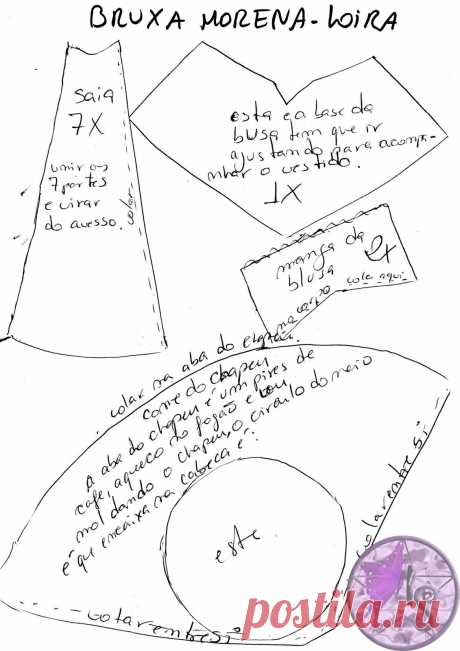 BRUXA MORENA-LOIRA
saia
7X
unir as
7 partes
e virar
do avesso.
colar
esta é a base da
blusa tem que ir
ajustando para acompa-
nhar o vestido.
1X
manga da
blusa
2x
cola aqui
no corpo
colar na aba do chapéu
cone do chapeu
A aba do chapeu é um pires de
café, aqueço no fogão e vou
moldando o chapeu, o circulo do meio
é que encaixa na cabeça é:
este
colar entre si
colar entre si
postila.ru